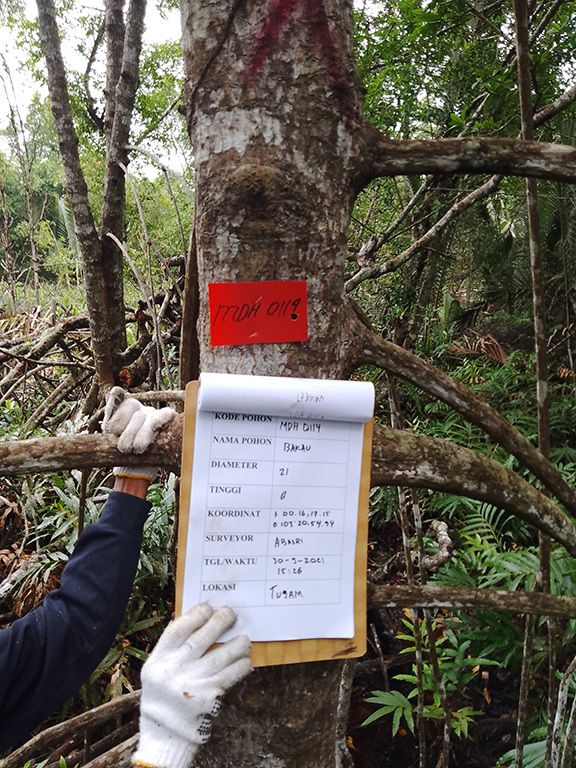 MDH 0119
BAKAU
KODE POHON MDH 0119
NAMA POHON BAKAU
DIAMETER 21
TINGGI
KOORDINAT S 00.16,17.15
E 103 20.54.94
SURVEYOR ABASRI
TGL/WAKTU 30-9-2021
15:26
LOKASI TUGAM